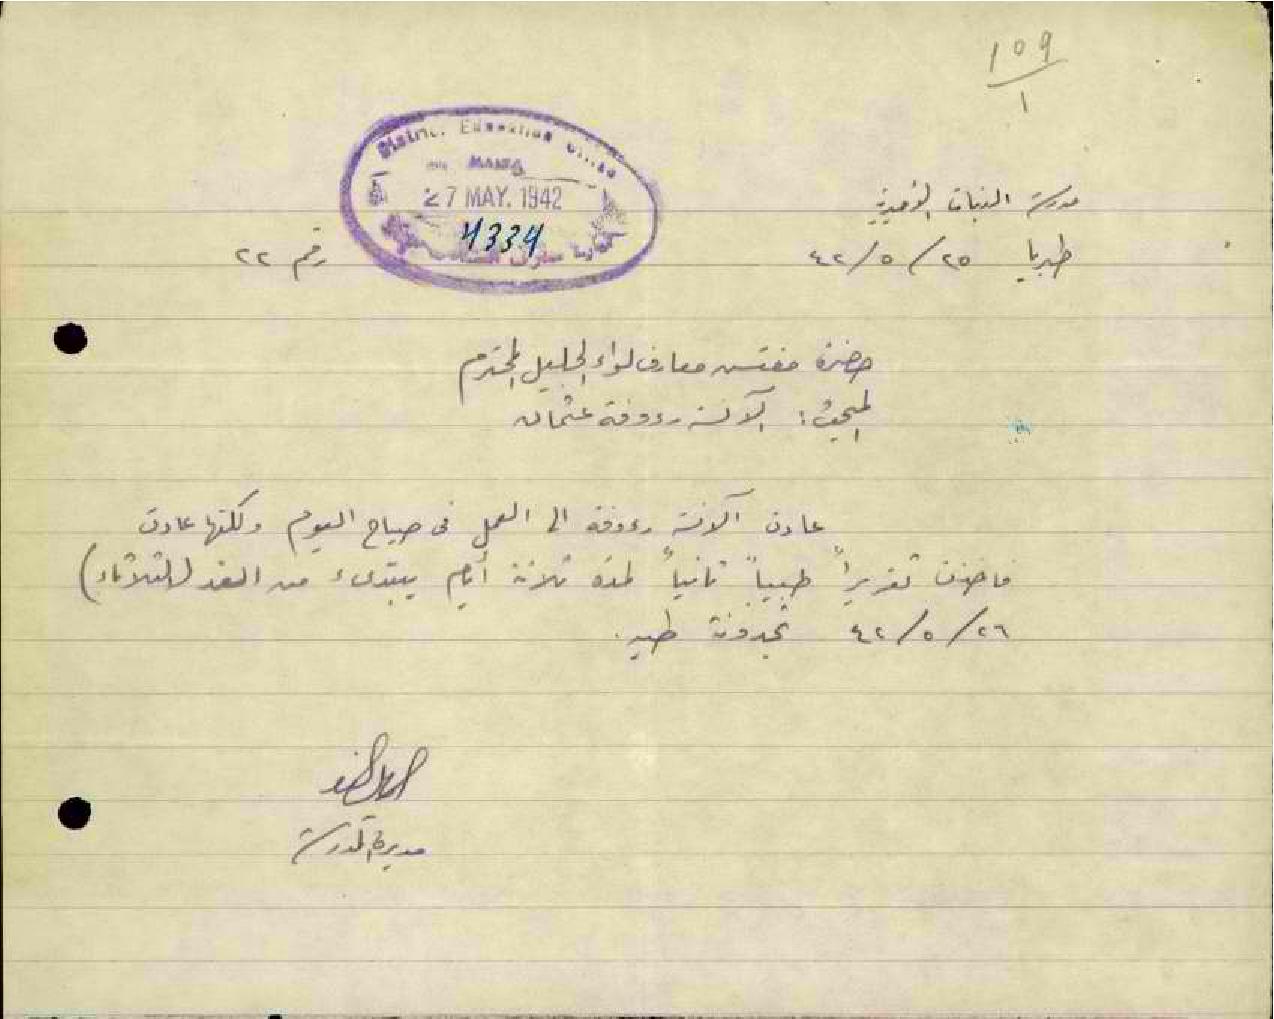 109
1
District Education Office
27 MAY. 1942
4334
معارف
مدرسة البنات الاميرية
طبريا ٢٥/٥/٤٢
رقم ٢٢
حضرة مفتش معارف لواء الجليل المحترم
المبحث: الآنسة رءوفة عثمان
عادت الآنسة رءوفة الى العمل في صباح اليوم ولكنها عادت
فاحضرت تقريراً طبياً ثانياً لمدة ثلاثة أيام يبتدىء من الغد (الثلاثاء)
٢٦/٥/٤٢ تجدونه طيه.
مديرة المدرسة